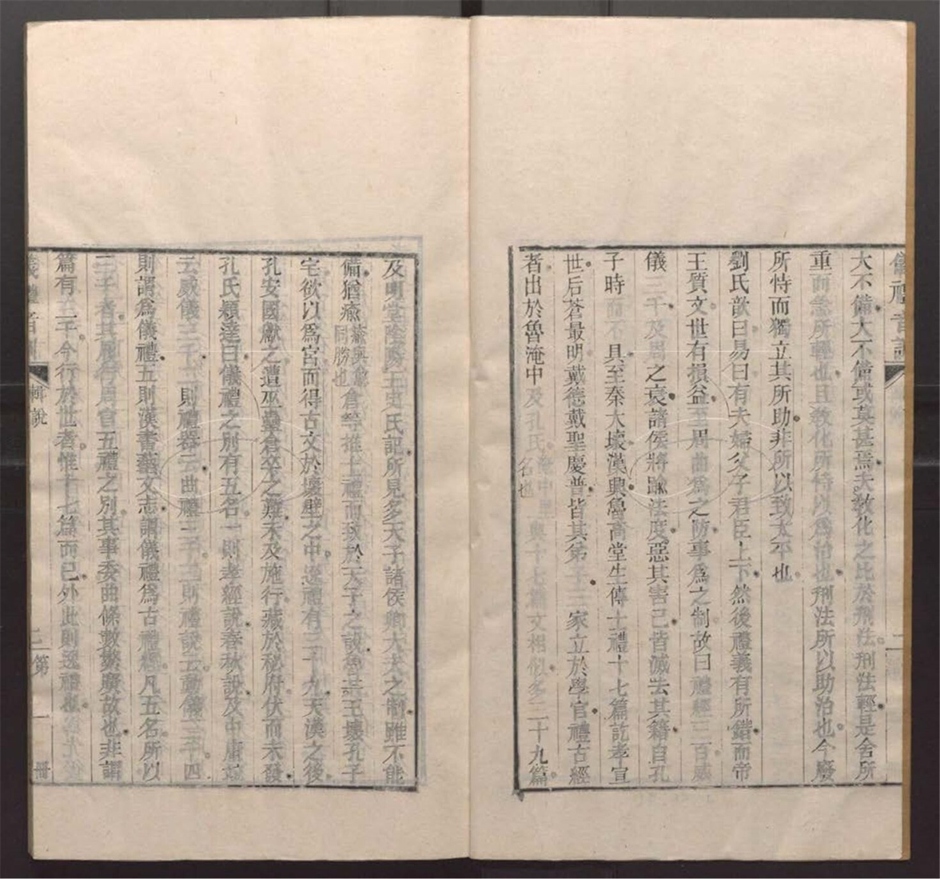 儀禮音訓
大不備大不備或莫甚焉夫教化之比於刑法刑法輕是舍所
重而急所輕也且教化所恃以爲治也刑法所以助治也今廢
所恃而獨立其所助非所以致太平也
劉氏歆曰易曰有夫婦父子君臣上下然後禮義有所錯而帝
王質文世有損益至周曲爲之防事爲之制故曰禮經三百威
儀三千及周之衰諸侯將踰法度惡其害己皆滅去其籍自孔
子時而不具至秦大壞漢興魯高堂生傳士禮十七篇訖孝宣
世后蒼最明戴德戴聖慶普皆其弟子三家立於學官禮古經
者出於魯淹中及孔氏淹中里名也與十七篇文相似多三十九篇
及明堂陰陽王史氏記所見多天子諸侯卿大夫之制雖不能
備猶瘉倉等推士禮而致於天子之說魯共王壞孔子
宅欲以爲宮而得古文於壞壁之中逸禮有三十九天漢之後
孔安國獻之遭巫蠱倉卒之難未及施行藏於秘府伏而未發
孔氏穎達曰儀禮之別有五名一則孝經說春秋說及中庸
云威儀三千二則禮器云曲禮三千三則禮說云動儀三千四
則謂爲儀禮五則漢書藝文志謂儀禮爲古禮經凡五名所以
三千者其履行周官五禮之別其事委曲條數繁廣故也非謂
篇有三千今行於世者惟十七篇而已外此則逸禮
儀禮音訓 輯說 二 第一冊